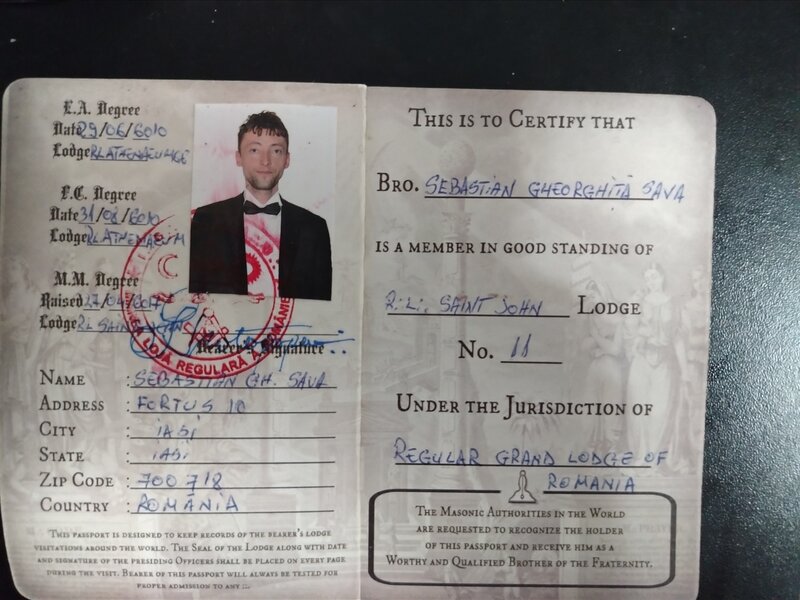 E.A. Degree
Date 29/06/6010
Lodge
F.C. Degree
Date 31/08/6010
Lodge RL ATHENAEUM
M.M. Degree
Raised
Lodge RL SAINT
Bearer's Signature
LOJĂ REGULARĂ
NAME : SEBASTIAN GH. SAVA
ADDRESS : FORTUS 10
CITY : IASI
STATE : IASI
ZIP CODE : 700 718
COUNTRY : ROMÂNIA
THIS PASSPORT IS DESIGNED TO KEEP RECORDS OF THE BEARER'S LODGE
VISITATIONS AROUND THE WORLD. THE SEAL OF THE LODGE ALONG WITH DATE
AND SIGNATURE OF THE PRESIDING OFFICERS SHALL BE PLACED ON EVERY PAGE
DURING THE VISIT. BEARER OF THIS PASSPORT WILL ALWAYS BE TESTED FOR
PROPER ADMISSION TO ANY ...
THIS IS TO CERTIFY THAT
BRO. SEBASTIAN GHEORGHITĂ SAVA
IS A MEMBER IN GOOD STANDING OF
R.L. SAINT JOHN LODGE
NO. 11
UNDER THE JURISDICTION OF
REGULAR GRAND LODGE OF
ROMANIA
THE MASONIC AUTHORITIES IN THE WORLD
ARE REQUESTED TO RECOGNIZE THE HOLDER
OF THIS PASSPORT AND RECEIVE HIM AS A
WORTHY AND QUALIFIED BROTHER OF THE FRATERNITY.